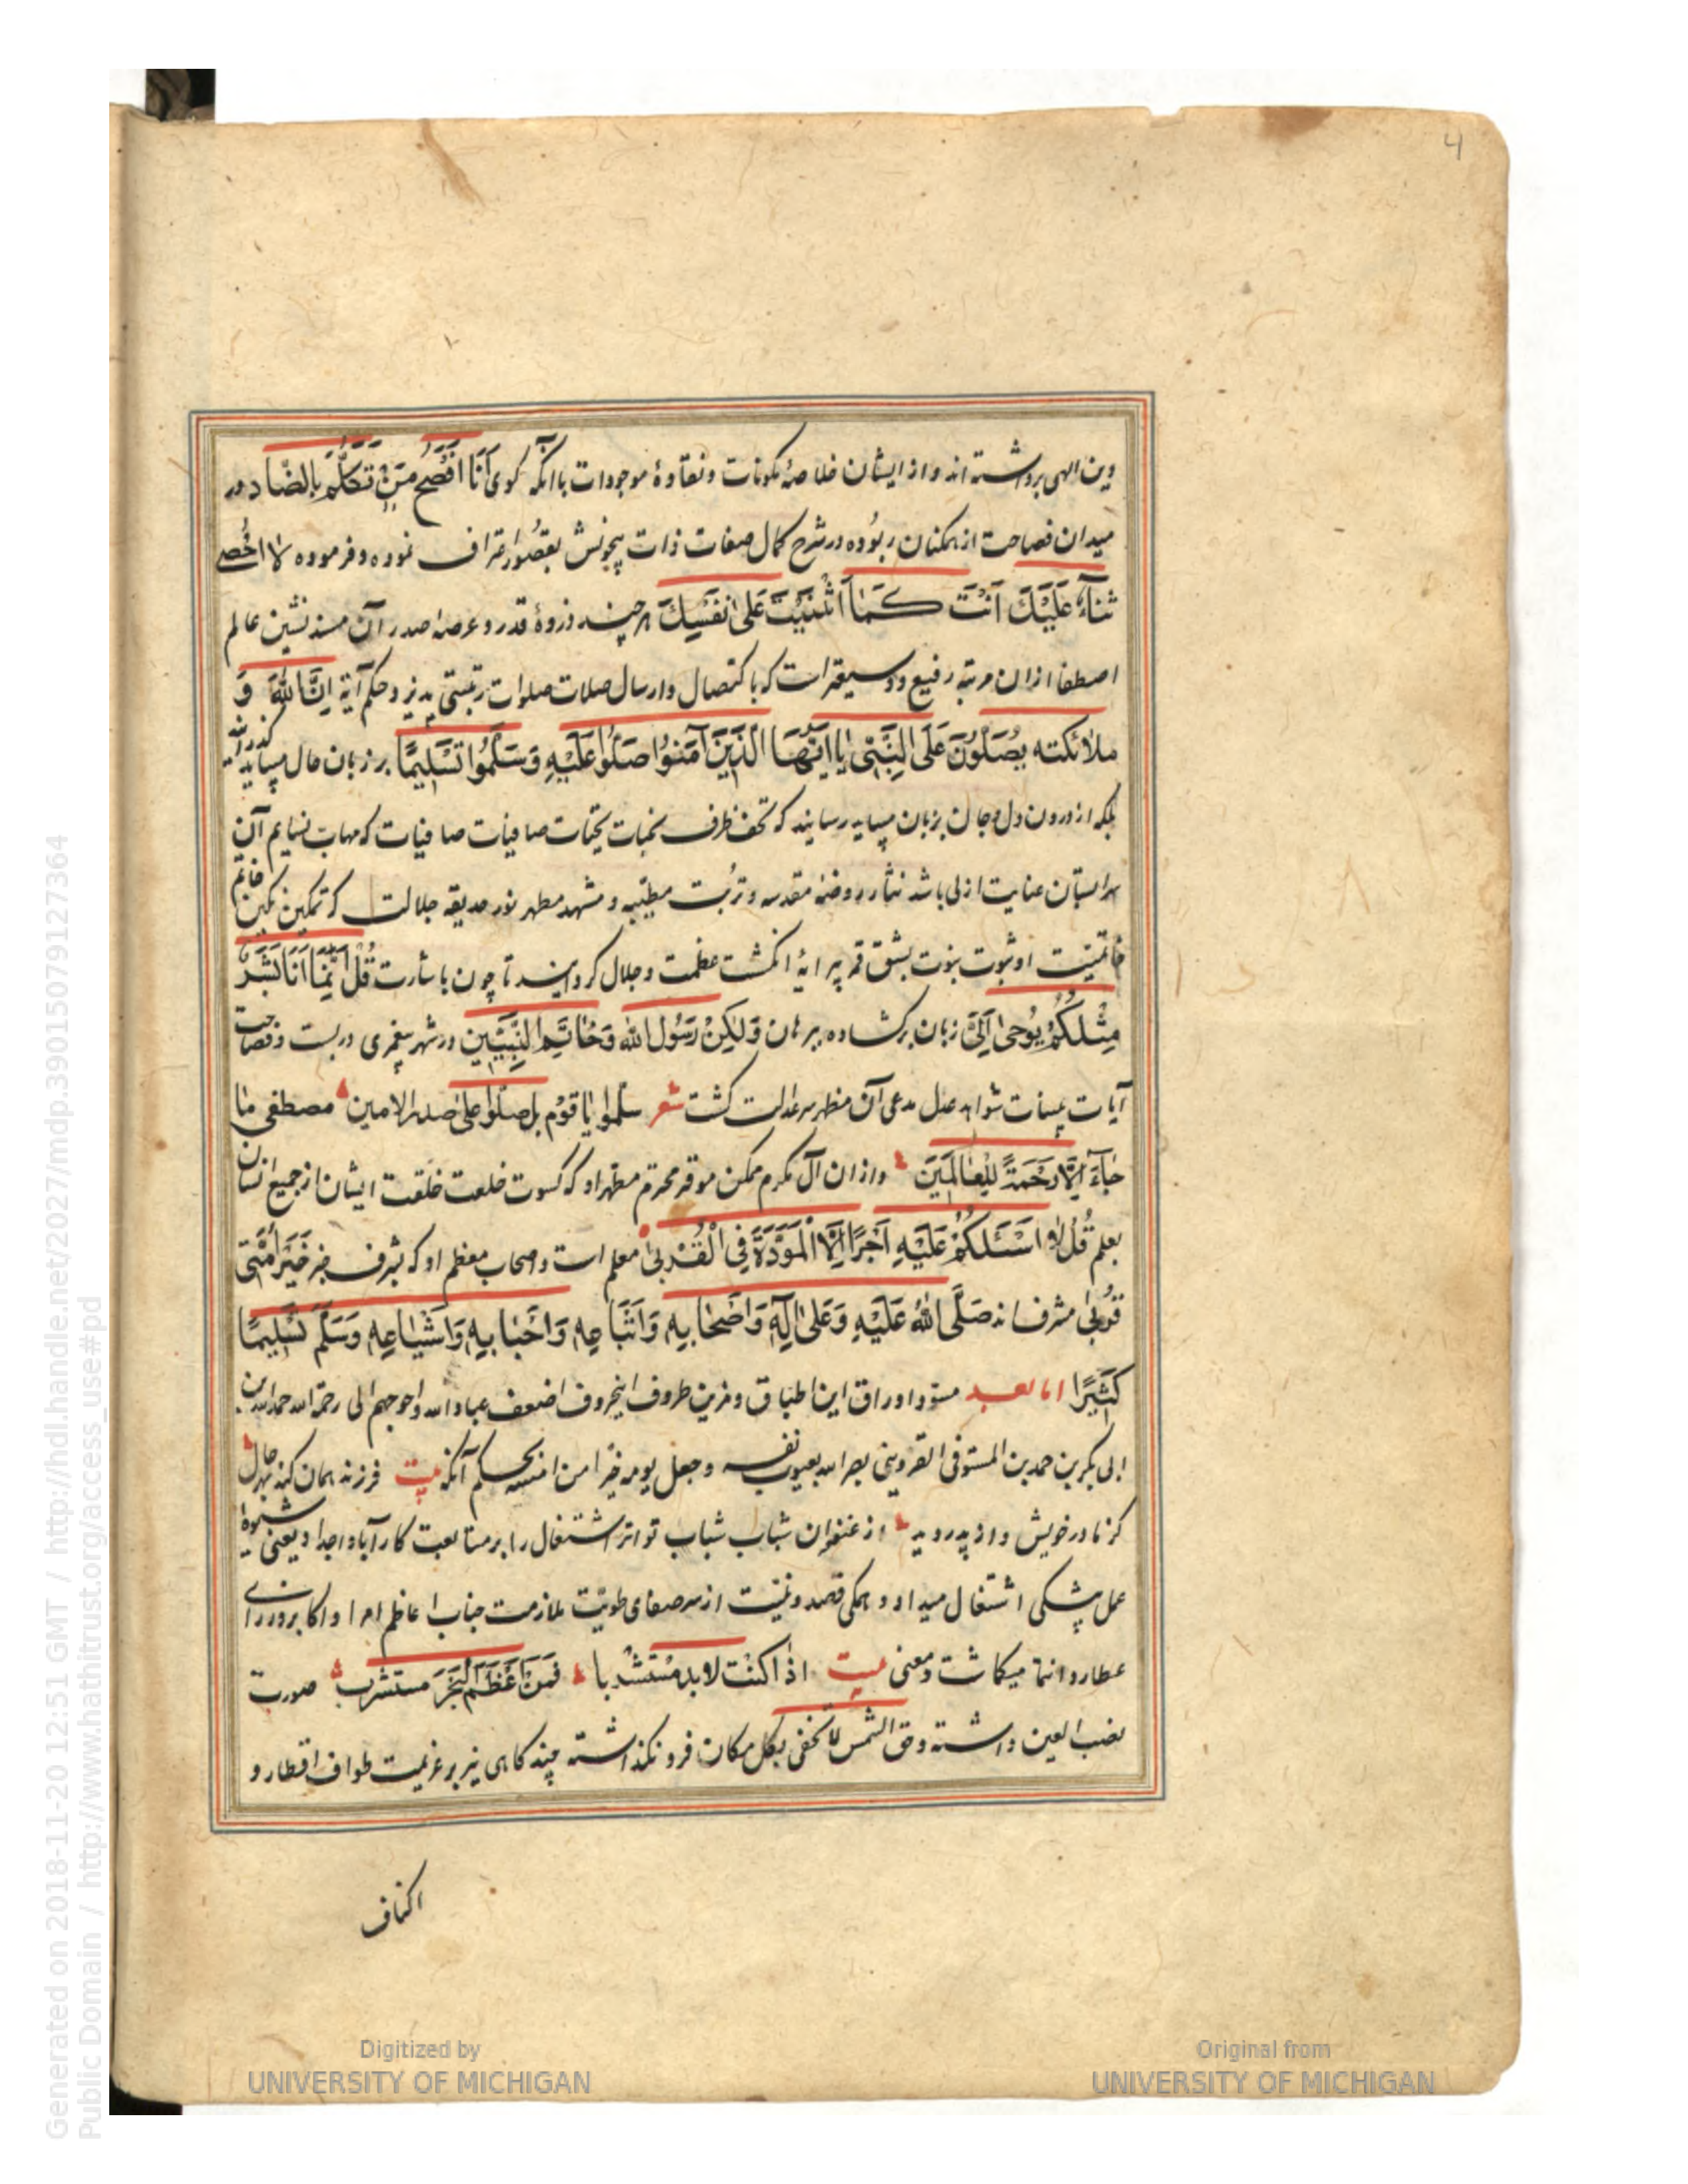 4
دین الهی برداشته اند و از ایشان خلاصهٔ مکونات و نقاوهٔ موجودات باآنکه کوی اَنَا اَفْصَحُ مَنْ تَکَلَّمَ بِالضّادِ در
میدان فصاحت از همکنان ربُوده در شرح کمال صفات ذات بیچونش بقصُور اعتراف نموده و فرموده لا اُحْصی
ثَنآءً عَلَیْکَ اَنْتَ کَمٰا اَثْنَیْتَ عَلیٰ نَفْسِکَ هر چند ذروهٔ قدر و عرصهٔ صدر آن مسند نشین عالم
اصطفا ازان مرتبه رفیع و وسیعتر است که با کتصال و ارسال صلات صلوات رتبتی پذیرد و حکم آیهٔ اِنَّ اللّهَ وَ
ملائکته یُصَلُّونَ عَلَی النَّبِیّ یٰا اَیُّهَا الَّذینَ آمَنوُا صَلُّوا عَلَیْهِ وَسَلِّمُوا تَسْلیمًا بر زبان حال میباید گذرانید
بلکه از درون دل و جان بزبان میباید رسانید که تحف ظرف نخبات تحیّات صافیات صافیات که مهابّ نسایم آن
سرابستان عنایت ازلی باشد نثار روضهٔ مقدسه و تربُت مطیّبه و مشهد مطهر نور حدیقه جلالت که تمکین نکین خاتم
خاتمیّت او ثبوت نبوت بشق قمر پیرایهٔ انکشت عظمت و جلال کردانید تا چون باشارت قُلْ اِنَّمٰا اَنَا بَشَرٌ
مِثْلُکُمْ یُوحیٰ اِلَیَّ زبان برکشاده ببرهان وَلٰکِنْ رَسُولَ اللّه وَخٰاتَمَ النَّبِیّین در شهر پیغمبری دربست و فصاحت
آیات بینات شواهد عدل مدعی آن مظهر سر عدالت کشت شعر سلّموا یٰا قَوْمِ بل صلّوا علیٰ صدر الامین مصطفی مٰا
جٰآءَ اِلّا رَحْمَةً لِلْعٰالَمینَ و ازان آل مکرم ممکن موقر محترم مطهر او که کسوت خلعت خلقت ایشان از جمیع انسان
بعلم قُلْ لا اَسْئَلُکُمْ عَلَیْهِ اَجْرًا اِلَّا الْمَوَدَّةَ فِی الْقُرْبیٰ معلم است و اصحاب معظم او که بشرف خبر خَیْرُ اُمَّتی
قَرْنی مشرف اند صَلَّی اللّهُ عَلَیْهِ وَعَلیٰ آلِهِ وَاَصْحٰابِهِ وَاَتْبٰاعِهِ وَاَحْبٰابِهِ وَاَشْیٰاعِهِ وَسَلَّمَ تَسْلیمًا
کَثیرًا اما بعد مسوّد اوراق این اطباق و مزین ظروف اینحروف اضعف عباد الله و احوجهم الی رحمة الله حمد الله بن
ابی بکر بن حمد بن المستوفی القزوینی بصره الله بعیوب نفسه و جعل یومه خیرًا من امسه بحکم آنکه بیت فرزند همان کند بهر حال
کز مادر خویش و از پدر دید از عنفوان شباب شباب تواتر اشتغال را بر متابعت کار آباء و اجداد یعنی شیوهٔ
عمل پیشکی اشتغال میداد و همکی قصد و نیّت از سر صفای طویّت بملازمت جناب اعاظم امرا و اکابر وزرای
عطارد انتما میکاشت و معنی بیت اذا کنْت لا بد مُسْتَشْرِبا فَمِنْ اَعْظَمِ الْبَحْرِ مستشرب صورت
نصب العین داشته و حق الشمس لا تخفی بکل مکان فرو نکذاشته چند کاهی نیز بر عزیمت طواف اقطار و
اکناف
Digitized by
UNIVERSITY OF MICHIGAN
Original from
UNIVERSITY OF MICHIGAN
Generated on 2018-11-20 12:51 GMT / http://hdl.handle.net/2027/mdp.39015079127364
Public Domain / http://www.hathitrust.org/access_use#pd